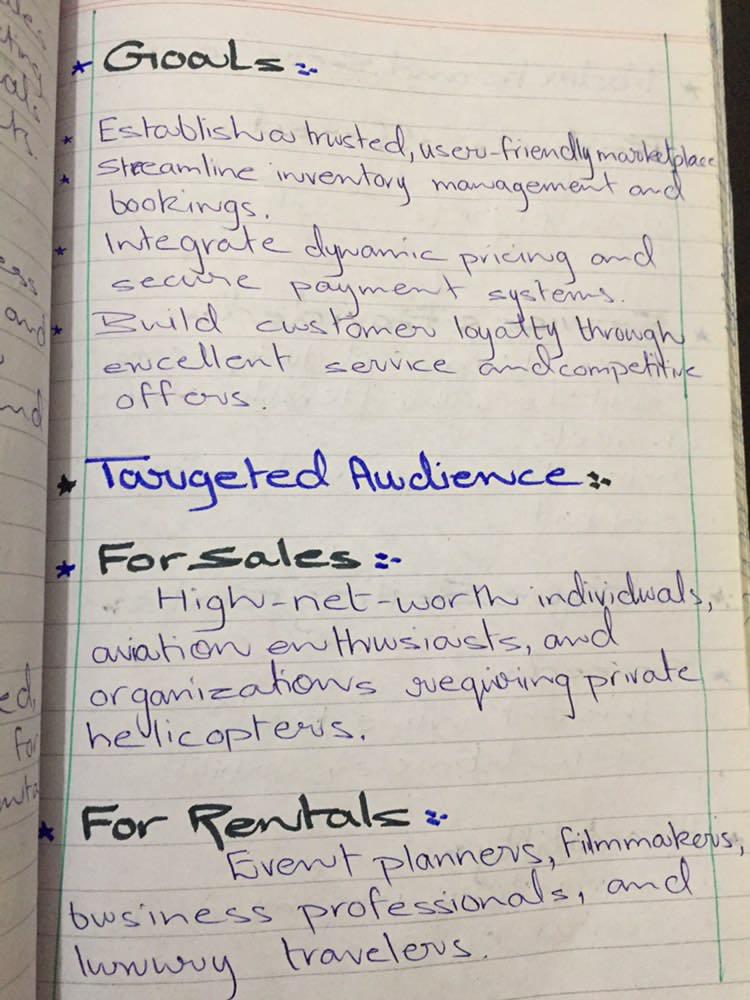 * Goals :-
* Establish a trusted, user-friendly marketplace
* Streamline inventory management and
bookings.
* Integrate dynamic pricing and
secure payment systems.
* Build customer loyalty through
excellent service and competitive
offers.
* Targeted Audience :-
* For Sales :-
High-net-worth individuals,
aviation enthusiasts, and
organizations requiring private
helicopters.
* For Rentals :-
Event planners, filmmakers,
business professionals, and
luxury travelers.